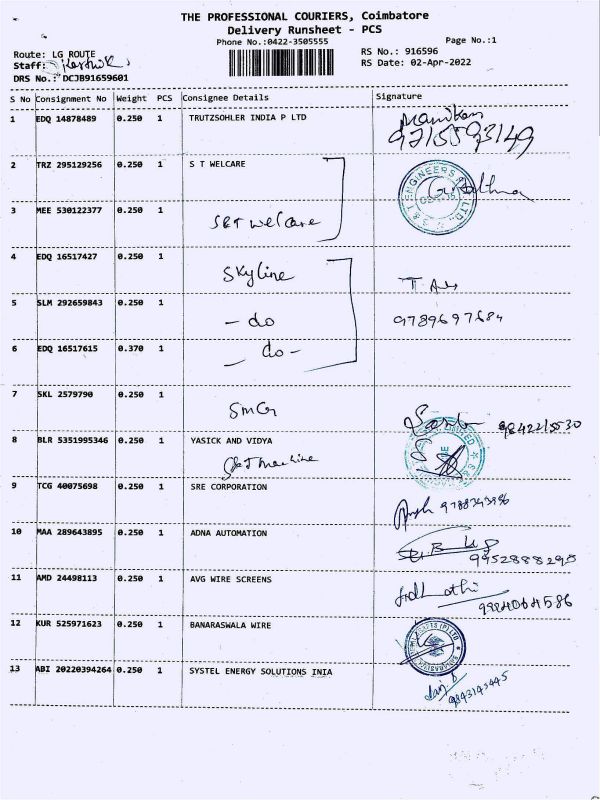 THE PROFESSIONAL COURIERS, Coimbatore
Delivery Runsheet - PCS
Phone No.:0422-3505555
Page No.:1
Route: LG ROUTE
RS No.: 916596
Staff:
RS Date: 02-Apr-2022
DRS No.: DCJB91659601
S No Consignment No Weight PCS Consignee Details Signature
1 EDQ 14878489 0.250 1 TRUTZSOHLER INDIA P LTD
9715593149
2 TRZ 295129256 0.250 1 S T WELCARE
3 MEE 530122377 0.250 1 S&T welcare
4 EDQ 16517427 0.250 1 Skyline
5 SLM 292659843 0.250 1 - do 9789697684
6 EDQ 16517615 0.370 1 - do -
7 SKL 2579790 0.250 1 SMG
9842215530
8 BLR 5351995346 0.250 1 YASICK AND VIDYA
S&T Machine
9 TCG 40075698 0.250 1 SRE CORPORATION
10 MAA 289643895 0.250 1 ADNA AUTOMATION
9952888295
11 AMD 24498113 0.250 1 AVG WIRE SCREENS
12 KUR 525971623 0.250 1 BANARASWALA WIRE
13 ABI 20220394264 0.250 1 SYSTEL ENERGY SOLUTIONS INIA
9843145445